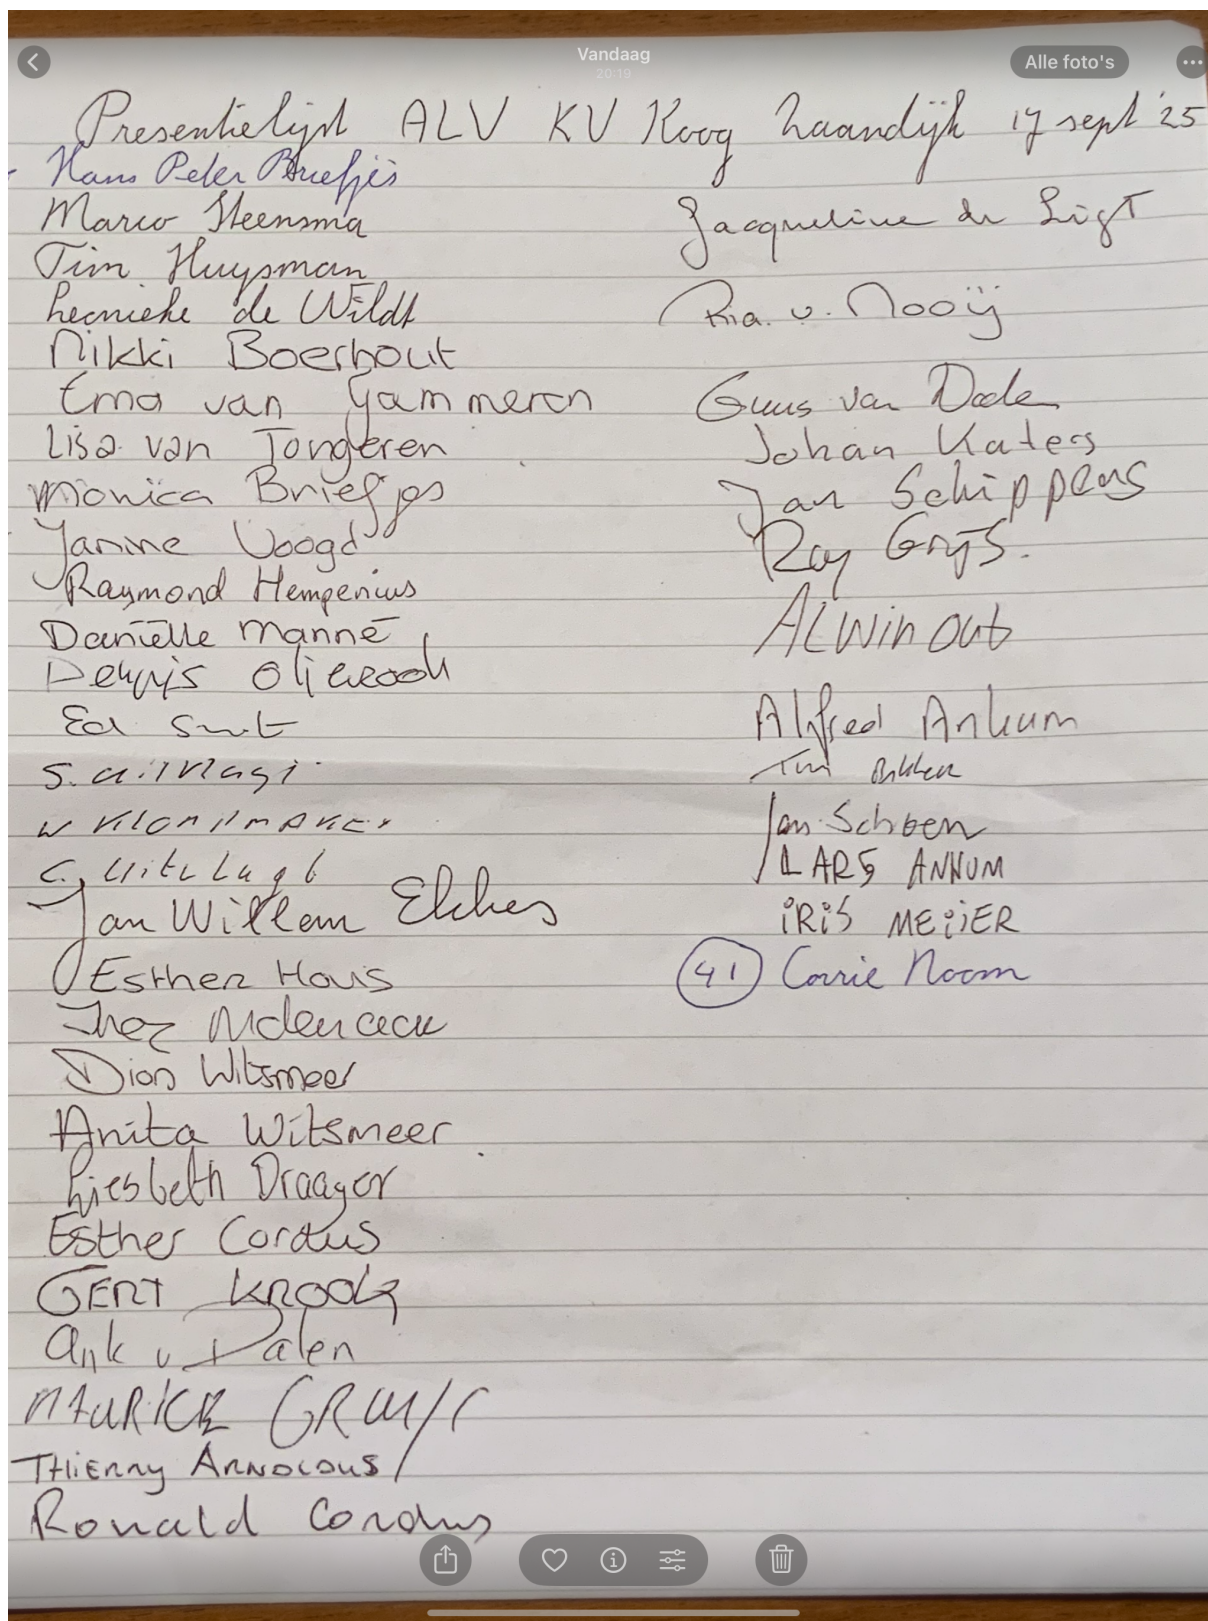 Vandaag
20:19
Alle foto's
Presentielijst ALV KV Koog Zaandijk 17 sept '25
Hans Peter Briefjes
Marco Steensma
Tim Huysman
de Wildt
Nikki Boerhout
Erna van Gammeren
Lisa van Tongeren
Monica Briefjes
Janine Voogd
Raymond Hempenius
Daniëlle Manné
Dennis
Ed Smit
S.
W
C.
Jan Willem
Esther Hous
Inez
Dion Witsmeer
Anita Witsmeer
Liesbeth Draayer
Esther Cordus
GERT KROOK
Ank v Dalen
MAURICE
THIERRY ARNOLDUS
Ronald Cordus
Jacqueline de Ligt
Ria v. Mooij
Guus van Dalen
Johan Katers
Jan Schippers
Ray Grijs.
ALWin Out
Alfred Ankum
Tim Bakker
Jan Schoen
LARS ANKUM
IRIS MEIJER
41 Corrie Noom